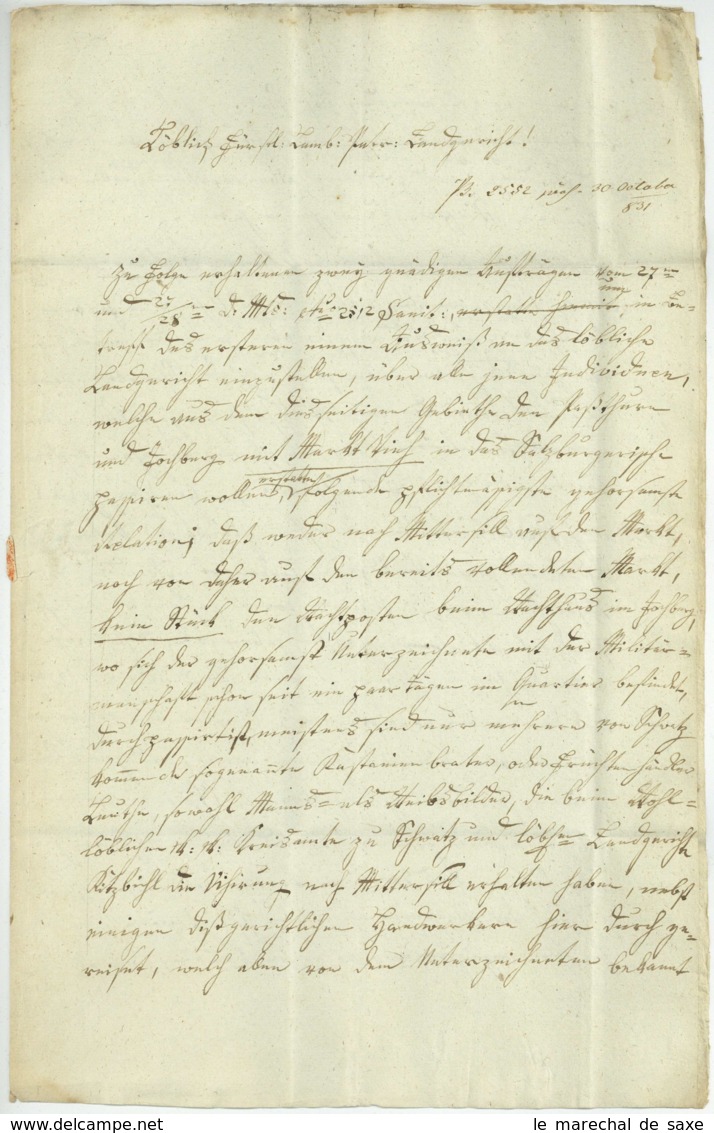 Löblich Fürstl: Lamb: Patr: Landgericht!
Pr. 2552 30 October
831
Zu Folge erhaltenen zwey gnädigen Aufträgen vom 27ten
und 28 d: Mts: 2512 Sanit: erstatte hiemit, in Be=
treff des ersteren einen Ausweiß an das löbliche
Landgericht einzustellen, über alle jene Individuen,
welche aus dem diesseitigen Gebiethe der Paßthurn
und Jochberg mit Markt Vieh in das Salzburgerische
passiren wollen, erstatte folgende pflichtmäßigste gehorsamste
Relation; daß weder nach Mittersill auf den Markt,
noch von daher auf den bereits vollendeten Markt,
kein Stück den Wachtposten beim Wachthaus in Jochberg,
wo sich der gehorsamst Unterzeichnete mit der Militär=
manschaft schon seit ein paar Tägen im Quartier befindet,
durchpassirt ist, meistens sind nur mehrere von Schwatz
kommende sogenannte Kastanienbrater, oder Früchten händler
Leuthe, sowohl Manns= als Weibsbilder, die beim Wohl=
löblichen K: K: Kreisamte zu Schwatz und löbchen Landgericht
Kitzbichl die Visirung nach Mittersill erhalten haben, nebst
einigen dißgerichtlichen Handwerkern hier durch ge=
reiset, welch aber von dem Unterzeichneten bekannt
le marechal de saxe